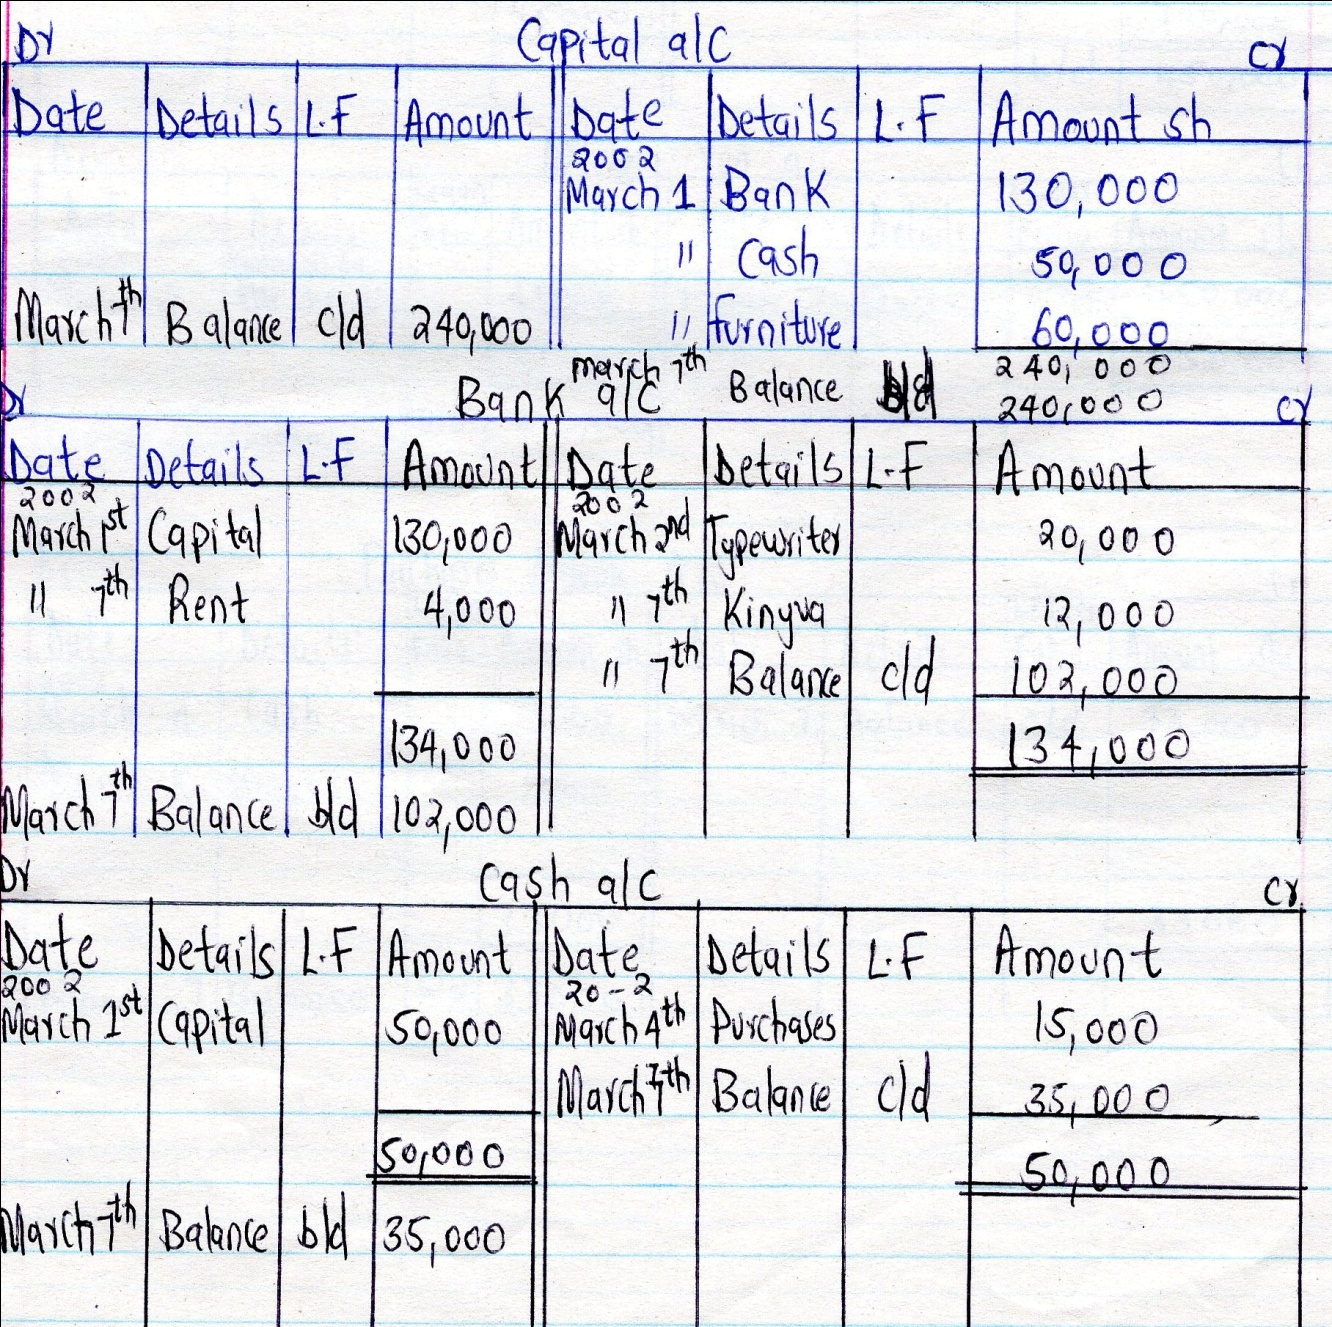 Dr Capital a/c Cr
Date Details L.F Amount Date Details L.F Amount sh
2002
March 1 Bank 130,000
" Cash 50,000
March 7th Balance c/d 240,000 " furniture 60,000
240,000
march 7th Balance b/d 240,000
Dr Bank a/c Cr
Date Details L.F Amount Date Details L.F Amount
2002 2002
March 1st Capital 130,000 March 2nd Typewriter 20,000
" 7th Rent 4,000 " 7th Kinyua 12,000
" 7th Balance c/d 102,000
134,000 134,000
March 7th Balance b/d 102,000
Dr Cash a/c Cr
Date Details L.F Amount Date Details L.F Amount
2002 20-2
March 1st Capital 50,000 March 4th Purchases 15,000
March 7th Balance c/d 35,000
50,000 50,000
March 7th Balance b/d 35,000